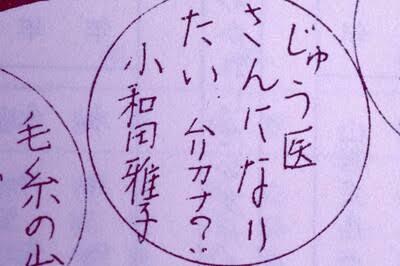 じゅう医
さんになり
たい。弁カナ?
小和田雅子
毛糸の